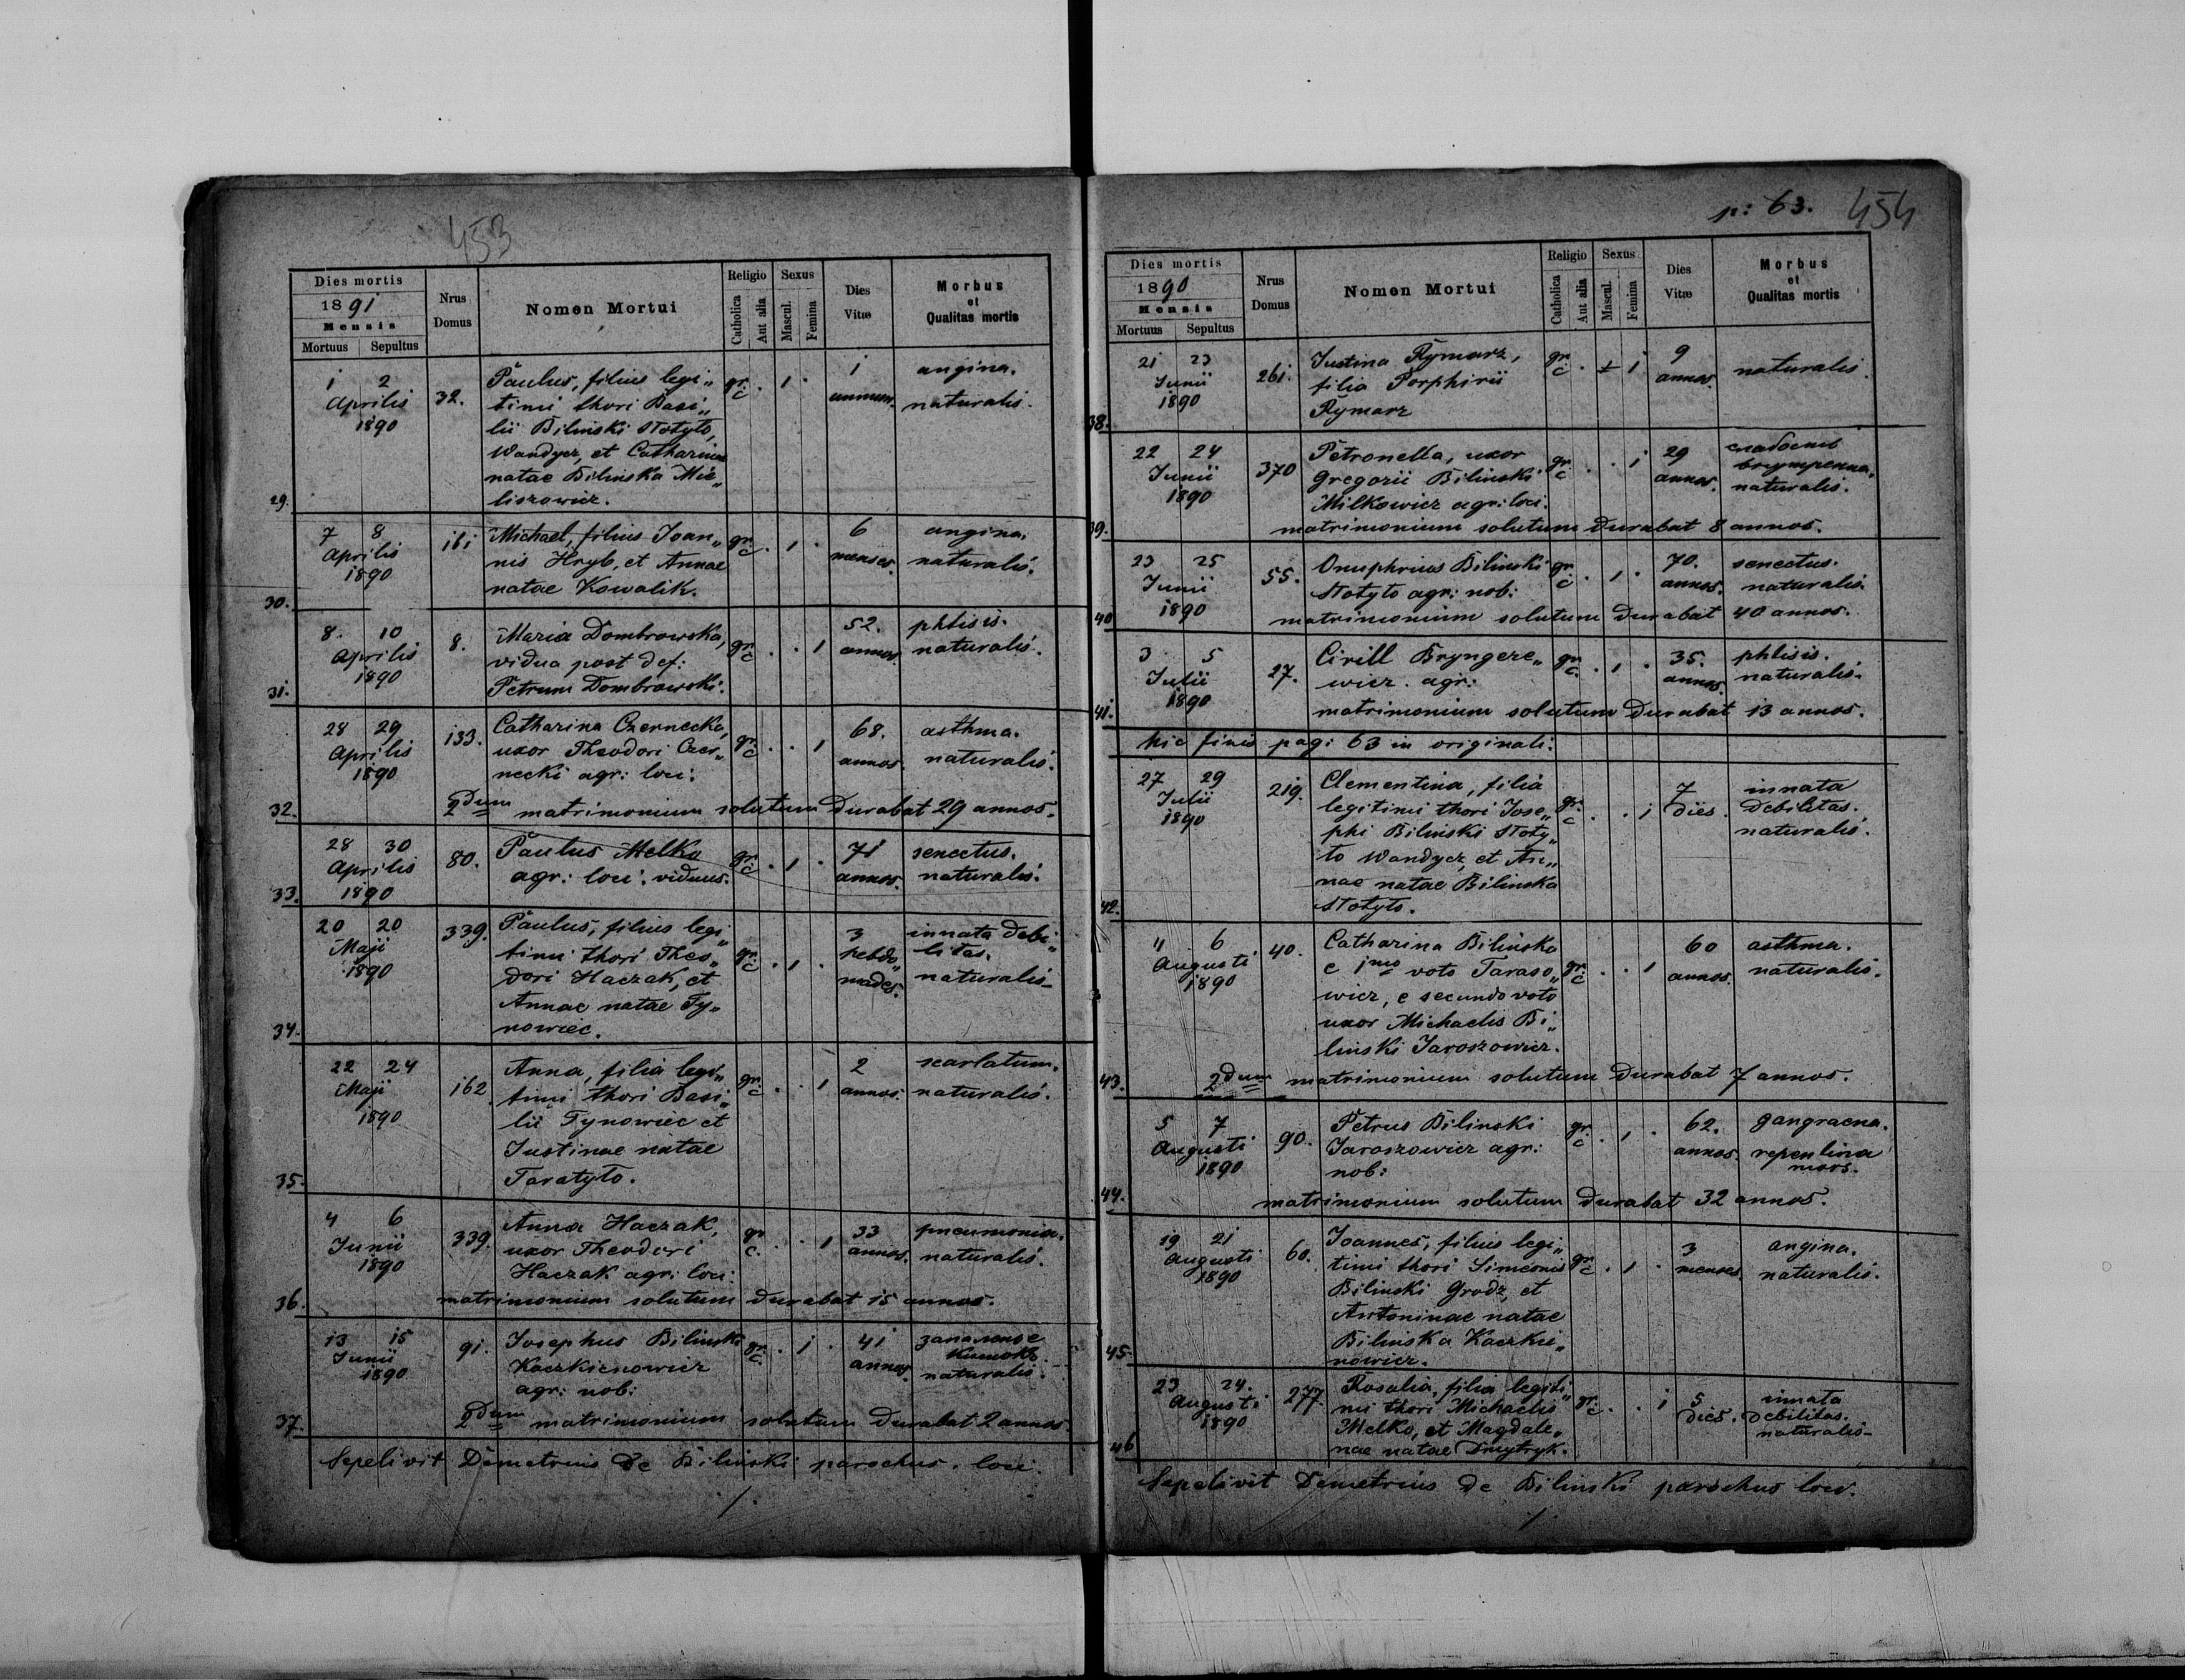 453
Dies mortis
1891
Mensis
Mortuus Sepultus
Nrus
Domus
Nomen Mortui
Religio
Catholica
Aut alia
Sexus
Mascul.
Femina
Dies
Vitæ
Morbus
et
Qualitas mortis
29.
1 2
Aprilis
1890
32.
Paulus, filius legi„
timi thori Basi„
lii Bilinski Stotyto,
Wandycz, et Catharinae
natae Bilinska Mie„
liszowicz.
gr. c. . 1 .
1
annum.
angina.
naturalis.
30.
7 8
Aprilis
1890
161
Michael, filius Joan„
nis Hryb, et Annae
natae Kowalik.
gr. c. . 1 .
6
menses.
angina.
naturalis.
31.
8. 10
Aprilis
1890
8.
Maria Dombrowska,
vidua post def:
Petrum Dombrowski.
gr. c. . . 1
52.
annos.
phtisis.
naturalis.
32.
28 29
Aprilis
1890
133.
Catharina Czernecka,
uxor Theodori Czer„
necki agr: loci.
gr. c. . . 1
68.
annos.
asthma.
naturalis.
2dum matrimonium solutum durabat 29 annos.
33.
28 30
Aprilis
1890
80.
Paulus Melko
agr: loci. viduus.
gr. c. . 1 .
71
annos.
senectus.
naturalis.
34.
20 20
Maji
1890
339.
Paulus, filius legi„
timi thori Theo„
dori Haczak, et
Annae natae Ty„
nowiec.
gr. c. . 1 .
3
hebdo„
mades.
innata debi„
litas.
naturalis.
35.
22 24
Maji
1890
162.
Anna, filia legi„
timi thori Basi„
lii Tynowiec et
Justinae natae
Taratyto.
gr. c. . . 1
2
annos.
scarlatum.
naturalis.
36.
4 6
Junii
1890
339.
Anna Haczak,
uxor Theodori
Haczak agr: loci.
gr. c. . . 1
33
annos.
pneumonia.
naturalis.
matrimonium solutum durabat 15 annos.
37.
13 15
Junii
1890
91.
Josephus Bilinski
Kaczkienowicz
agr: nob:
gr. c. . 1 .
41
annos.
запаленье
кишокъ.
naturalis.
2dum matrimonium solutum durabat 2 annos.
Sepelivit Demetrius de Bilinski parochus loci.
p: 63. 454
Dies mortis
1890
Mensis
Mortuus Sepultus
Nrus
Domus
Nomen Mortui
Religio
Catholica
Aut alia
Sexus
Mascul.
Femina
Dies
Vitæ
Morbus
et
Qualitas mortis
38.
21 23
Junii
1890
261.
Justina Rymarz,
filia Porphirii
Rymarz
gr. c. . 1
9
annos.
naturalis.
39.
22 24
Junii
1890
370
Petronella, uxor
Gregorii Bilinski
Milkowicz agr: loci.
gr. c. . . 1
29
annos.
naturalis.
matrimonium solutum durabat 8 annos.
40
23 25
Junii
1890
55.
Onuphrius Bilinski
Stotyto agr: nob:
gr. c. . 1 .
70.
annos.
senectus.
naturalis.
matrimonium solutum durabat 40 annos.
41.
3 5
Julii
1890
27.
Cirill Bryngere„
wicz. agr:
gr. c. . 1 .
35.
annos.
phtisis.
naturalis.
matrimonium solutum durabat 13 annos.
hic finis pag: 63 in originali.
42.
27 29
Julii
1890
219.
Clementina, filia
legitimi thori Jose„
phi Bilinski Stoty„
to Wandycz, et An„
nae natae Bilinska
Stotyto.
gr. c. . . 1
7
dies.
innata
debilitas.
naturalis.
43.
4 6
Augusti
1890
40.
Catharina Bilinska
e 1mo voto Taraso„
wicz, e secundo voto
uxor Michaelis Bi„
linski Jaroszowicz.
gr. c. . . 1
60
annos.
asthma.
naturalis.
2dum matrimonium solutum durabat 7 annos.
44.
5 7
Augusti
1890
90.
Petrus Bilinski
Jaroszowicz agr:
nob:
gr. c. . 1 .
62.
annos.
gangraena.
repentina
mors.
matrimonium solutum durabat 32 annos.
45.
19 21
Augusti
1890
60.
Joannes, filius legi„
timi thori Simeonis
Bilinski Grodz, et
Antoninae natae
Bilinska Kaczkie„
nowicz.
gr. c. . 1 .
3
menses.
angina.
naturalis.
46
23 24.
Augusti
1890
277.
Rosalia, filia legiti„
mi thori Michaelis
Melko, et Magdale„
nae natae Dmytryk.
gr. c. . . 1
5
dies.
innata
debilitas.
naturalis.
Sepelivit Demetrius de Bilinski parochus loci.